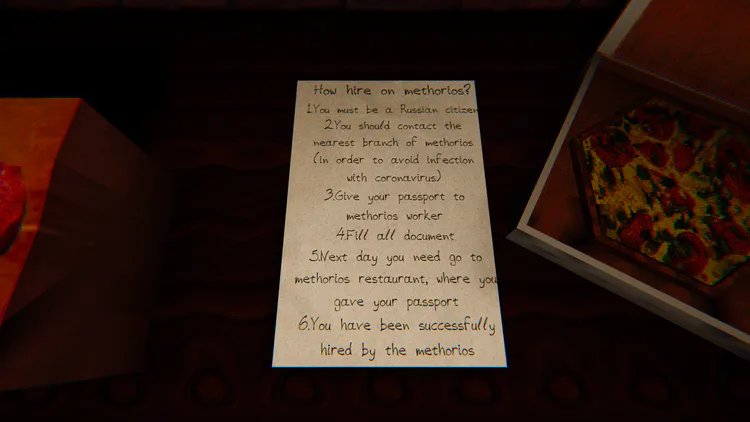 How hire on methorios?
1.You must be a Russian citizen
2.You should contact the
nearest branch of methorios
(in order to avoid infection
with coronavirus)
3.Give your passport to
methorios worker
4.Fill all document
5.Next day you need go to
methorios restaurant, where you
gave your passport
6.You have been successfully
hired by the methorios